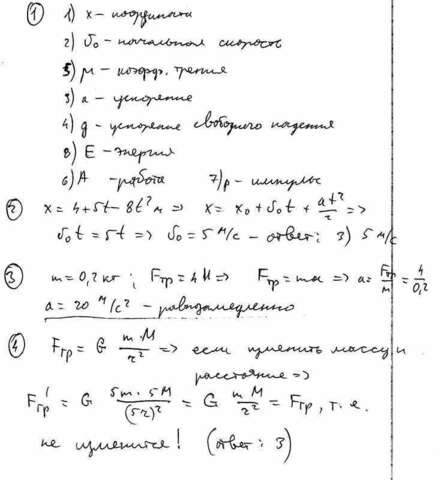 ① 1) x – координата
2) υ₀ – начальная скорость
5) μ – коэфф. трения
3) a – ускорение
4) g – ускорение свободного падения
8) E – энергия
6) A – работа 7) p – импульс
② x = 4 + 5t – 8t² м => x = x₀ + υ₀t + at²/2 =>
υ₀t = 5t => υ₀ = 5 м/с – ответ: 3) 5 м/с
③ m = 0,2 кг ; Fтр = 4 Н => Fтр = ma => a = Fтр/m = 4/0,2
a = 20 м/с² – равнозамедленно
④ Fгр = G m·M/r² => если изменить массу и
расстояние =>
Fгр' = G 5m·5M/(5r)² = G m M/r² = Fгр, т.е.
не изменится! (ответ: 3)